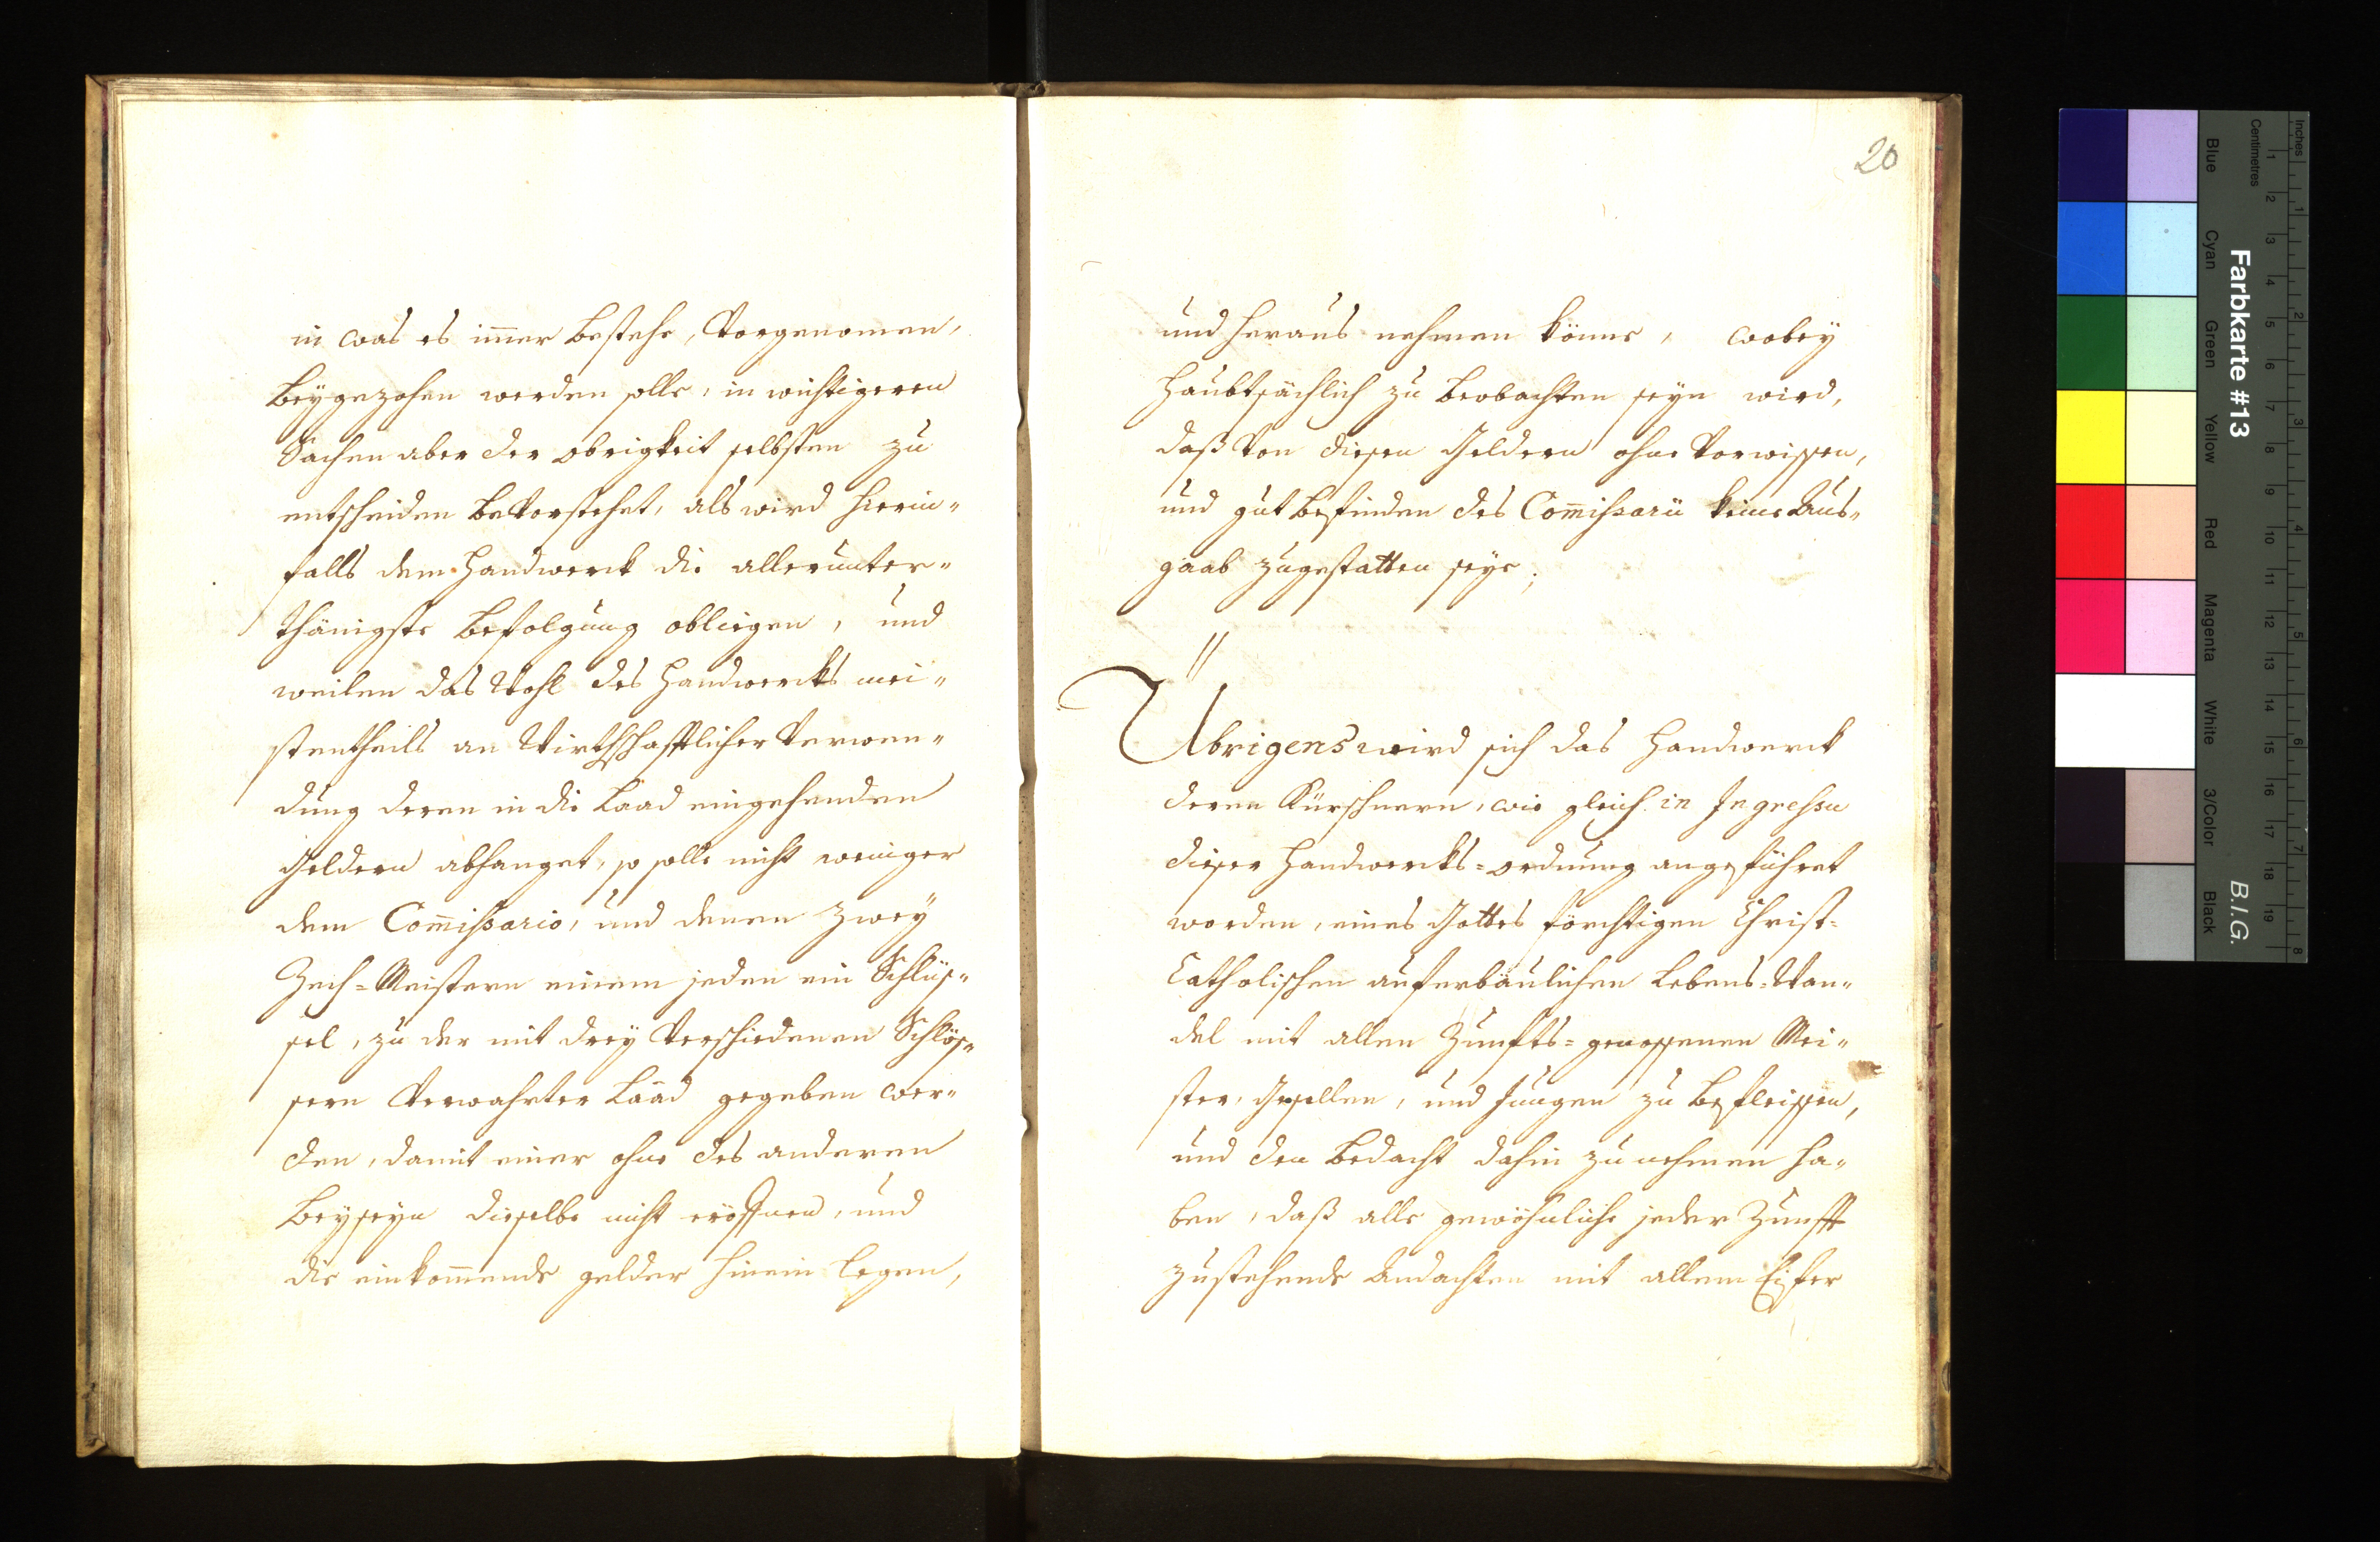 in was es im̄er bestehe, vorgenomen,
beÿgezohen werden solle, in wichtigeren
Sachen aber der obrigkeit selbsten zu
entscheiden bevorstehet, als wird hierin„
falls dem Handwerck die allerunter„
thänigste befolgung obliegen, und
weilen das Wohl des Handwercks mei„
stentheils an Wirthschafftlicher verwen„
dung deren in die Laad eingehenden
Geldern abhanget, so solle nicht weniger
dem Com̄ißario, und denen zweÿ
Zech=Meistern einem jeden ein Schlüs„
sel, zu der mit dreÿ verschiedenen Schlös„
sern verwahrter Laad gegeben wer„
den, damit einer ohne des anderen
beÿseÿn dieselbe nicht eröffnen, und
die einkom̄ende gelder hinein legen,
20
und heraus nehmen könne, wobeÿ
Haubtsächlich zu beobachten seÿn wird,
daß von diesen Geldern ohne vorwissen,
und gut befinden des Com̄ißarii keine Aus„
gaab zugestatten seÿe;
Übrigens wird sich das Handwerck
deren Kürschnern, wie gleich in Ingreßu
dieser Handwercks=ordnung angeführet
worden, eines Gottes förchtigen Christ=
Catholischen auferbäulichen Lebens=Wan„
del mit allen Zunfts=genossenen Mei„
ster, Gesellen, und Jungen zu befleissen,
und den bedacht dahin zu nehmen ha„
ben, daß alle gewöhnliche jeder Zunfft
zustehende Andachten mit allem Eifer
Farbkarte #13
B.I.G.
Inches
Centimetres
Blue
Cyan
Green
Yellow
Red
Magenta
White
3/Color
Black
1 2 3 4 5 6 7 8 9 10 11 12 13 14 15 16 17 18 19
1 2 3 4 5 6 7 8